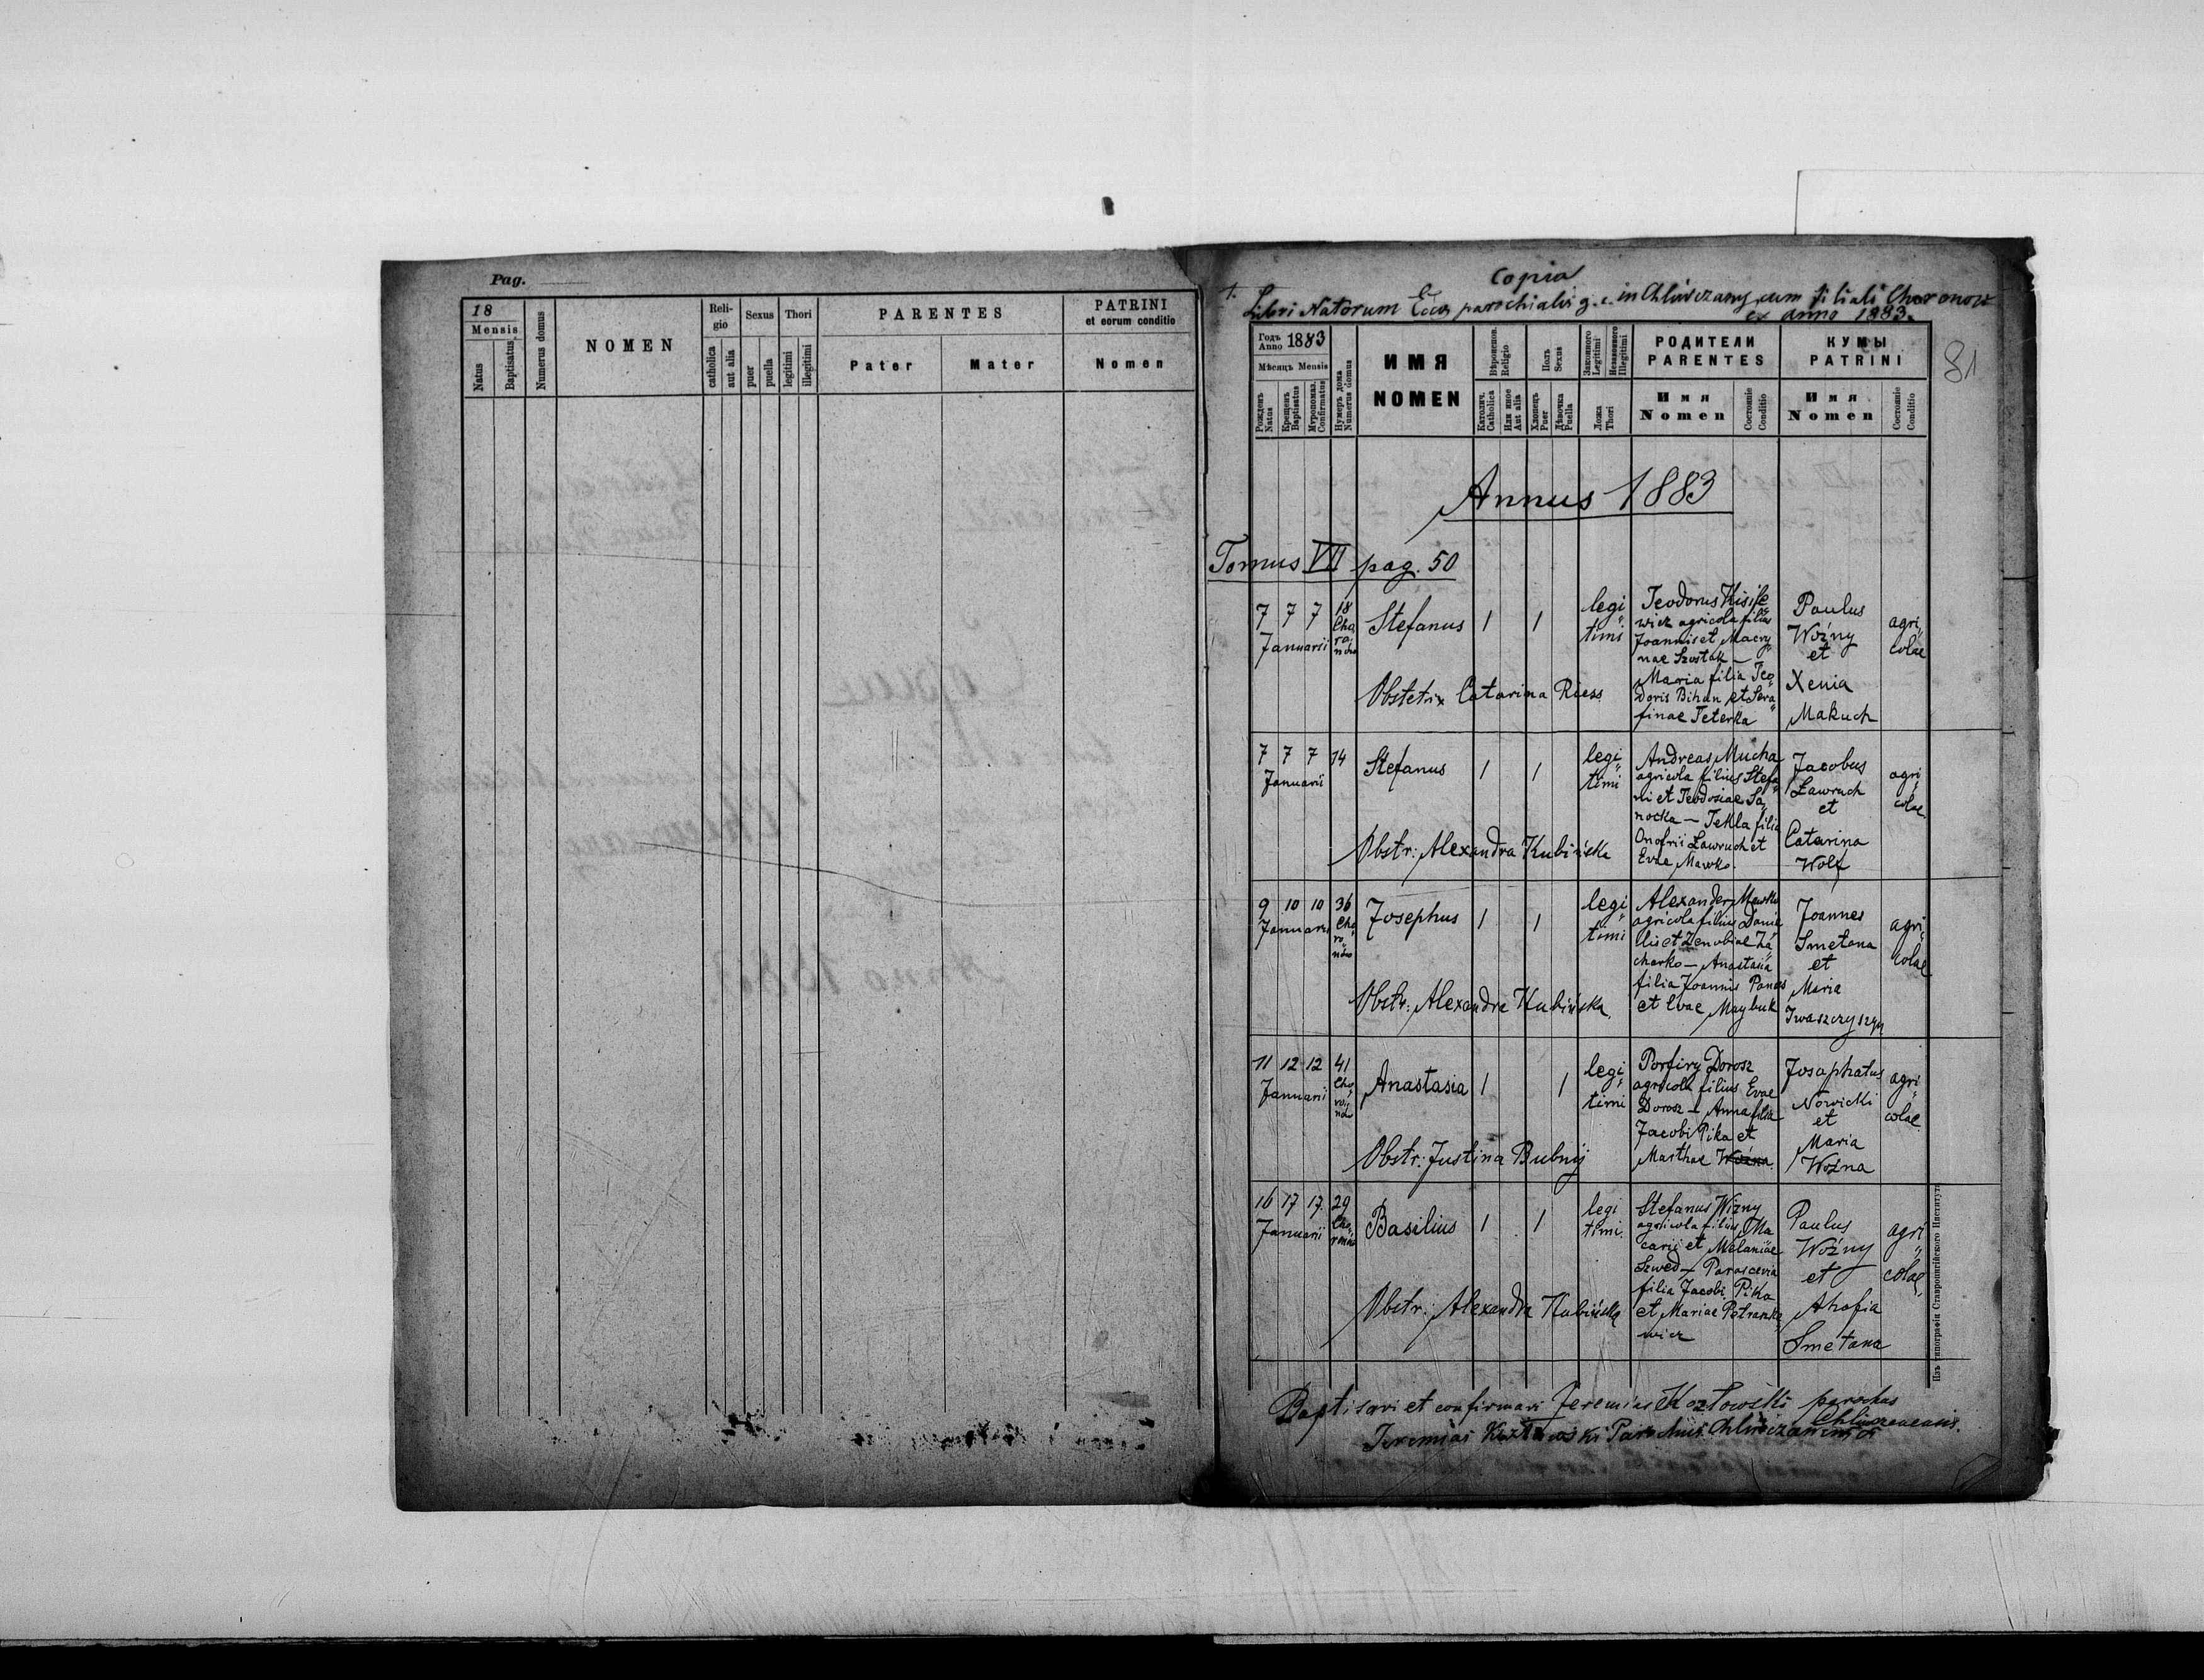 Pag.
18
Mensis
Natus
Baptisatus
Numerus domus
NOMEN
Reli-
gio
catholica
aut alia
Sexus
puer
puella
Thori
legitimi
illegitimi
PARENTES
Pater
Mater
PATRINI
et eorum conditio
Nomen
Copia
1.
Libri Natorum Eccae parochialis g. c. in Chliwczany cum filiali Choronow
ex anno 1883.
81
Годъ
Anno 1883
Мѣсяцъ Mensis
Рожденъ
Natus
Крещенъ
Baptisatus
Мѵропомаз.
Confirmatus
Нумеръ дома
Numerus domus
ИМЯ
NOMEN
Вѣроиспов.
Religio
Католич.
Catholica
Или иное
Aut alia
Полъ
Sexus
Хлопецъ
Puer
Дѣвочка
Puella
Законного
Legitimi
Незаконного
Illegitimi
Ложа
Thori
РОДИТЕЛИ
PARENTES
Имя
Nomen
Состояніе
Conditio
КУМЫ
PATRINI
Имя
Nomen
Состояніе
Conditio
Annus 1883
Tomus VII pag. 50
7 7 7 18
Januarii
Cha
ro
nów
Stefanus 1 1
legi
timi
Teodorus Kisile
wicz agricola filius
Joannis et Macry
nae Szostak —
Maria filia Teo
doris Bihun et Sera
finae Teterka
Paulus
Woźny
et
Xenia
Makuch
agri
colae
Obstetrix Catarina Riess
7 7 7 14
Januarii
Stefanus 1 1
legi
timi
Andreas Mucha
agricola filius Stefa
ni et Teodosiae Sa
nocka — Tekla filia
Onofrii Ławruch et
Evae Mawko
Jacobus
Ławruch
et
Catarina
Wolf
agri
colae
Obstr: Alexandra Kubińska
9 10 10 36
Januarii
Cha
ro
nów
Josephus 1 1
legi
timi
Alexander Mawko
agricola filius Danie
lis et Zenobiae Za
charko — Anastasia
filia Joannis Panas
et Evae Maybuk
Joannes
Smetana
et
Maria
Iwaszczyszyn
agri
colae
Obstr: Alexandra Kubińska
11 12 12 41
Januarii
Anastasia 1 1
legi
timi
Porfiry Dorosz
agricola filius Evae
Dorosz — Anna filia
Jacobi Pika et
Marthae Woźna
Josaphatus
Nowicki
et
Maria
Woźna
agri
colae
Obstr: Justina Bubnij
16 17 17 29
Januarii
Basilius 1 1
legi
timi
Stefanus Wizny
agricola filius Ma
carii et Melaniae
Szwed — Parascevia
filia Jacobi Pika
et Mariae Petraszke
wicz
Paulus
Woźny
et
Ahafia
Smetana
agri
colae
Obstr: Alexandra Kubińska
Baptisavi et confirmavi Jeremias Kozłowski parochus
Chliwczanensis.
Jeremias Kozłowski Parochus Chliwczanensis
Изъ типографіи Ставропигійского Института